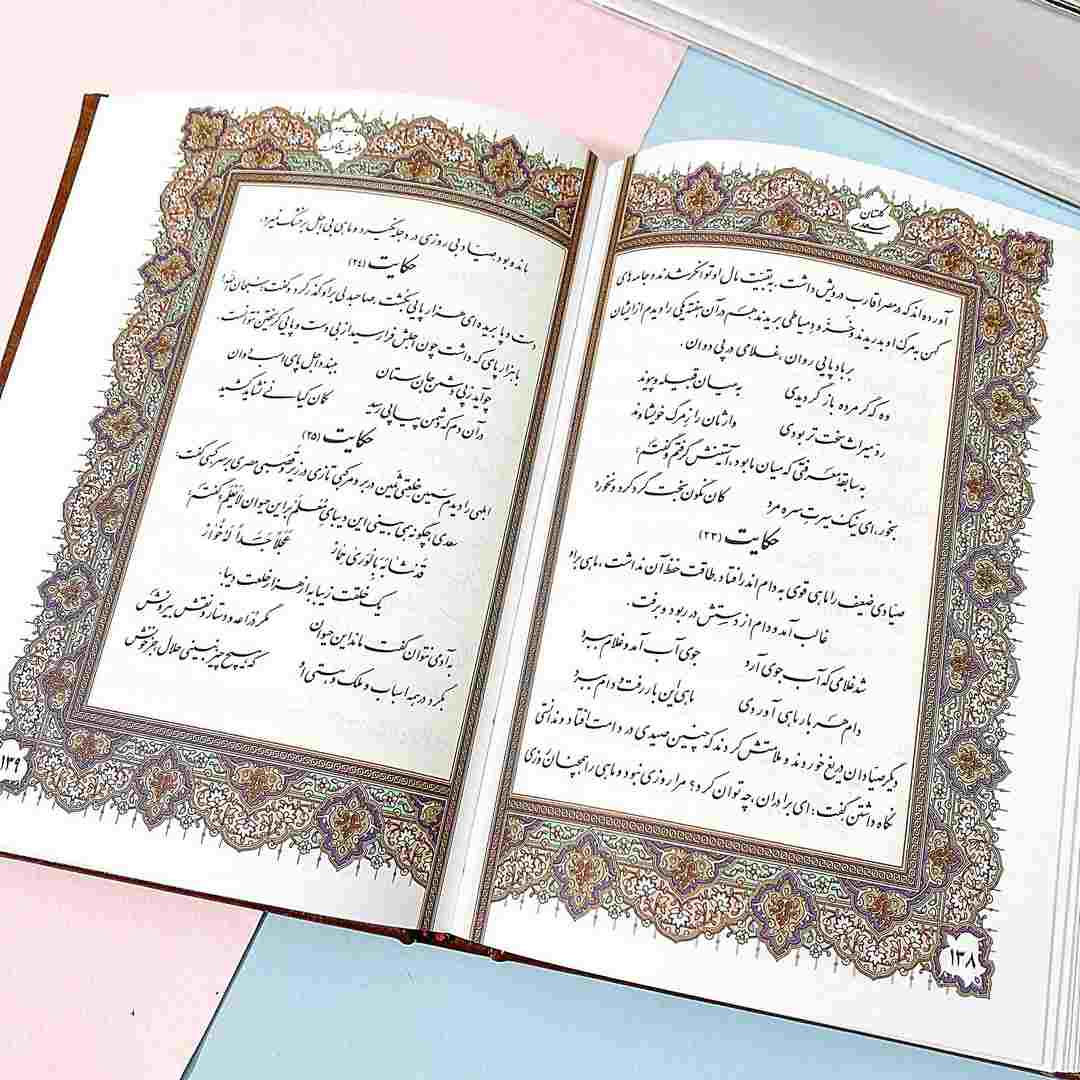 گلستان سعدی
آورده‌اند که در مصر اقارب درویش داشت. به بقیت مال او توانگر شدند و جامه‌های
کهن به مرگ او بدریدند و خز و دمیاطی بریدند. هم در آن هفته یکی را دیدم از ایشان
بر بادپایی روان، غلامی در پی دوان.
وه که گر مرده باز گردیدی به میان قبیله و پیوند
رد میراث سخت‌تر بودی وارثان را ز مرگ خویشاوند
به سابقهٔ معرفتی که میان ما بود، آستینش گرفتم و گفتم:
بخور، ای نیک سیرت سره مرد کان نگون‌بخت گرد کرد و نخورد
حکایت (۲۳)
صیادی ضعیف را ماهی قوی به دام اندر افتاد، طاقت حفظ آن نداشت، ماهی بر او
غالب آمد و دام از دستش در ربود و برفت.
شد غلامی که آب جوی آرد جوی آب آمد و غلام ببرد
دام هر بار ماهی آوردی ماهی این بار رفت و دام ببرد
دیگر صیادان دریغ خوردند و ملامتش کردند که چنین صیدی در دامت افتاد و ندانستی
نگاه داشتن؛ گفت: ای برادران، چه توان کرد؟ مرا روزی نبود و ماهی را همچنان روزی
۱۳۸
مانده بود. صیاد بی روزی در دجله نگیرد و ماهی بی اجل بر خشک نمیرد.
حکایت (۲۴)
دست و پا بریده‌ای هزارپایی بکشت. صاحبدلی بر او گذر کرد و گفت: سبحان الله!
با هزار پای که داشت چون اجلش فرا رسید از بی دست و پایی گریختن نتوانست.
چو آید ز پی دشمن جان‌ستان ببندد اجل پای اسب دوان
در آن دم که دشمن پیاپی رسید کمان کیانی نشاید کشید
حکایت (۲۵)
ابلهی را دیدم سمین خلعتی ثمین در بر و مرکبی تازی در زیر و قصبی مصری بر سر. کسی گفت:
سعدی چگونه همی بینی این دیبای معلم بر این حیوان لایعلم؟ گفتم:
قَدْ شَابَهَ بِالْوَرَیٰ حِمَارٌ عِجْلاً جَسَداً لَهُ خُوَارٌ
یک خلقت زیبا به از هزار خلعت دیبا.
به آدمی نتوان گفت ماند این حیوان مگر دراعه و دستار و نقش بیرونش
بگرد در همه اسباب و ملک و هستی او که هیچ چیز نبینی حلال جز خونش
۱۳۹